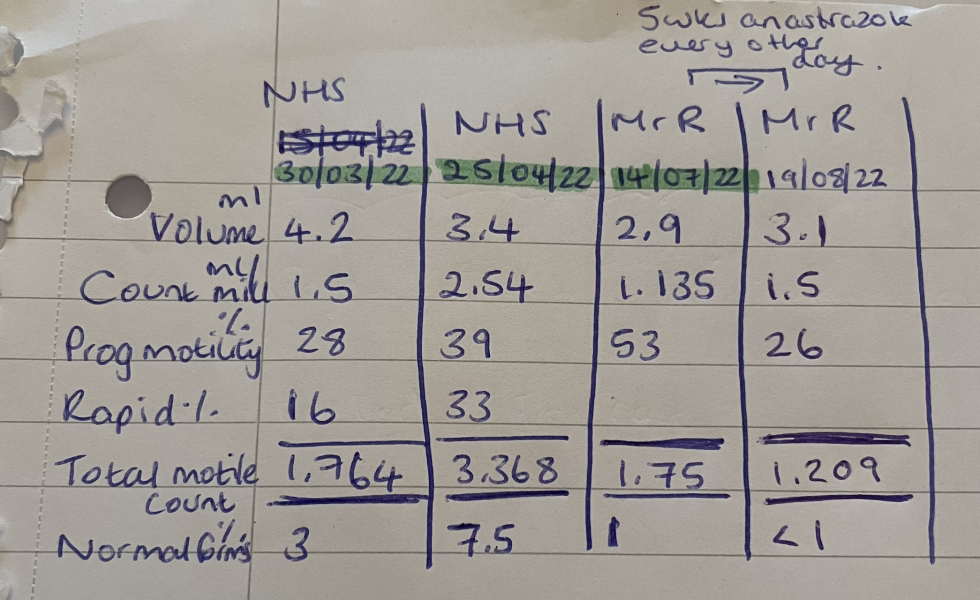 5wks anastrazole
every other
day.
NHS
15/04/22
NHS MrR MrR
30/03/22 25/04/22 14/07/22 19/08/22
ml
Volume 4.2 3.4 2.9 3.1
Count mill 1.5 2.54 1.135 1.5
%
Prog motility 28 39 53 26
Rapid % 16 33
Total motile 1.764 3.368 1.75 1.209
count
%
Normal 3 7.5 1 <1